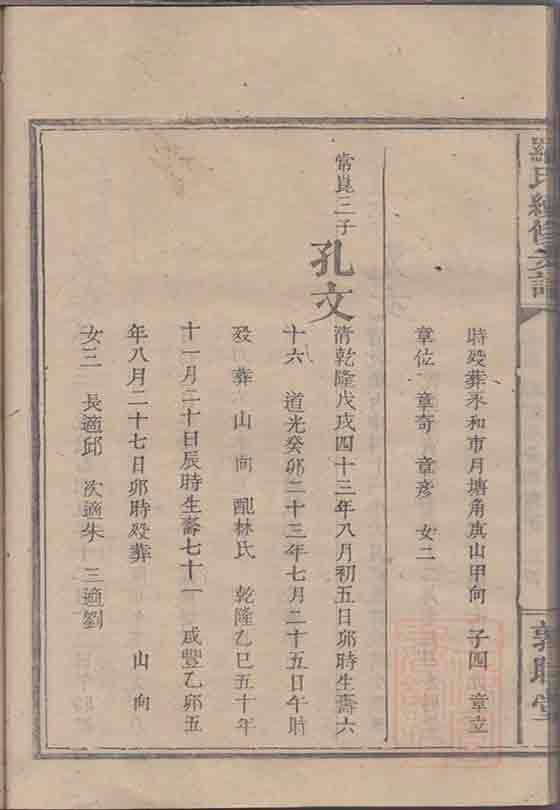 羅氏續修支譜
敦睦堂
時歿葬永和市月塘角庚山甲向　子四　章立
章位　章奇　章彥　女二
常崑三子
孔文
清乾隆戊戌四十三年八月初五日卯時生壽六
十六　道光癸卯二十三年七月二十五日午時
歿　葬　山　向　配林氏　乾隆乙巳五十年
十一月二十日辰時生壽七十一　咸豐乙卯五
年八月二十七日卯時歿葬　山　向
女三　長適邱　次適朱　三適劉